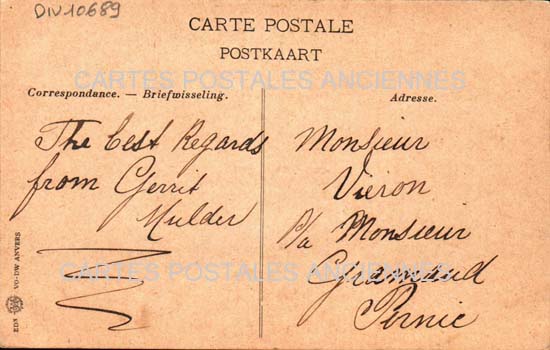 DIV10689
CARTE POSTALE
POSTKAART
CARTES POSTALES ANCIENNES
Correspondance. — Briefwisseling.
Adresse.
The best Regards
from Gerrit
Mulder
Monsieur
Vieron
p/a Monsieur
Gramaud
Pernic
CARTES POSTALES ANCIENNES
EDN VO-DW ANVERS